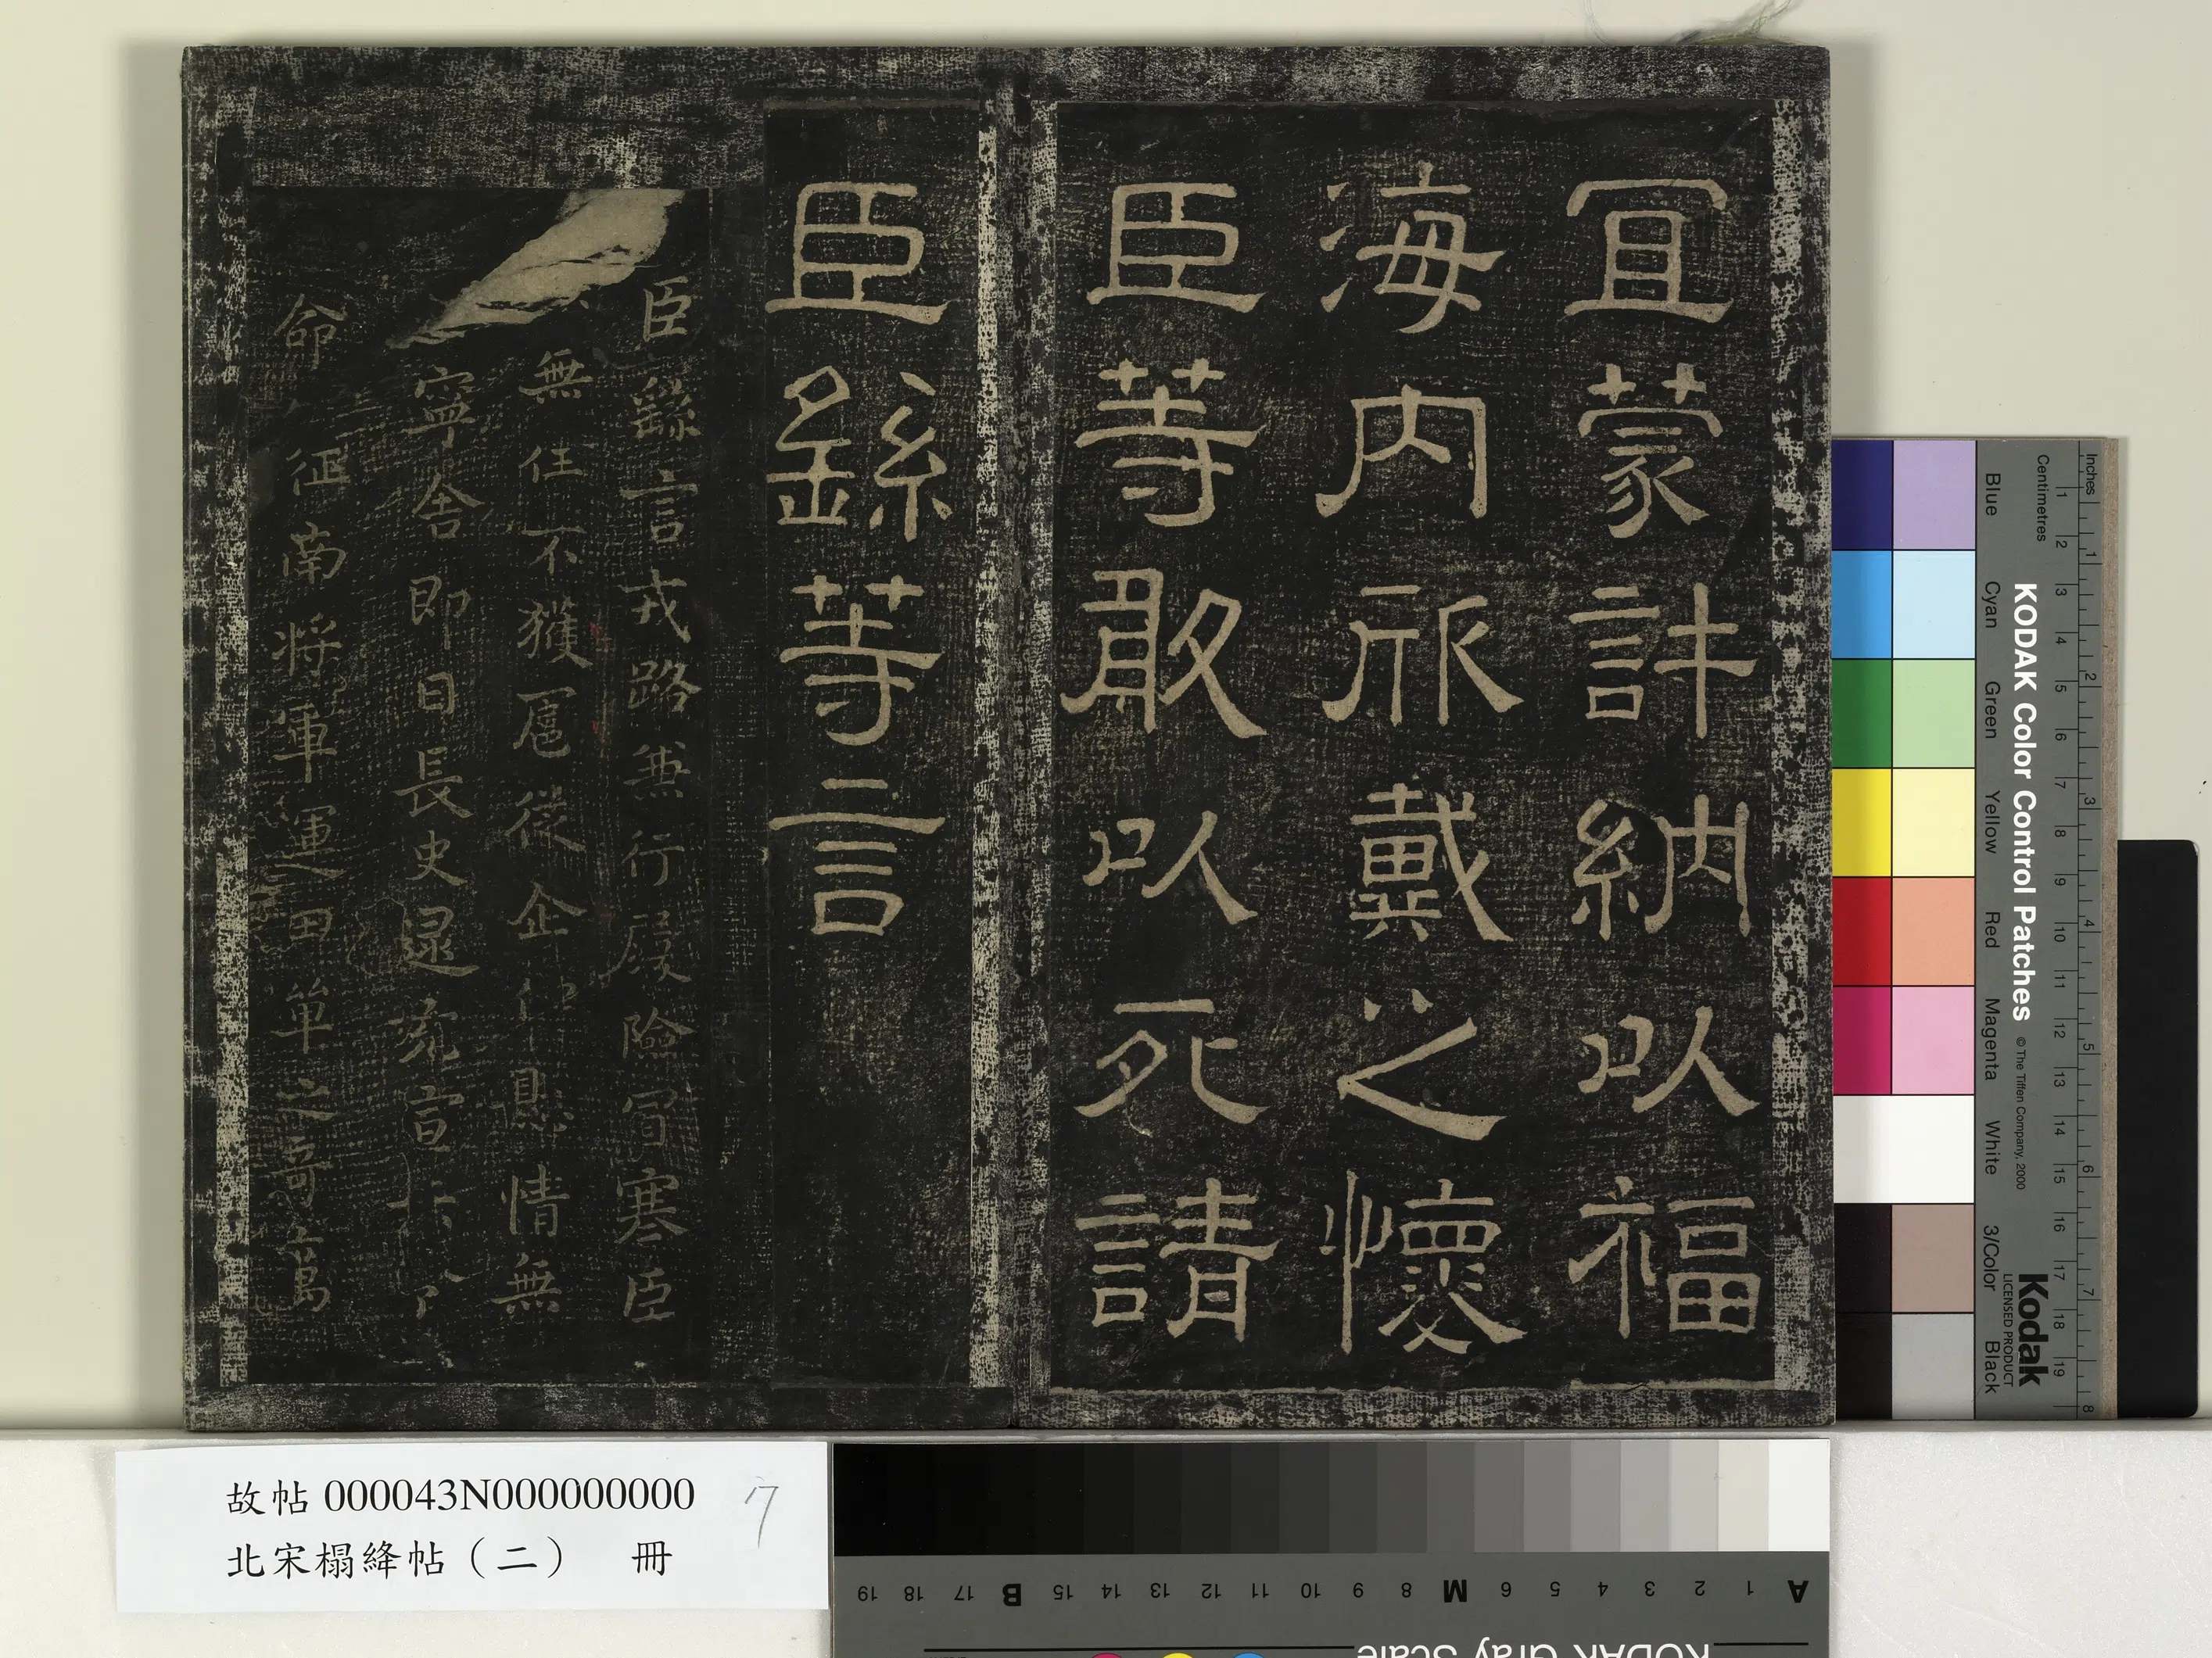 宜蒙許納以福
海內欣戴之懷
臣等敢以死請
臣繇等言
臣繇言戎路兼行履險冒寒臣
無任不獲扈從企仰懸情無
寧舍即日長史逯充宣
命征南將軍運田單之奇厲
故帖 000043N000000000 7
北宋榻絳帖（二） 冊
KODAK Color Control Patches
© The Tiffen Company, 2000
Kodak
LICENSED PRODUCT
Inches 1 2 3 4 5 6 7 8
Centimetres 1 2 3 4 5 6 7 8 9 10 11 12 13 14 15 16 17 18 19
Blue Cyan Green Yellow Red Magenta White 3/Color Black
A 1 2 3 4 5 6 M 8 9 10 11 12 13 14 15 B 17 18 19
KODAK Gray Scale